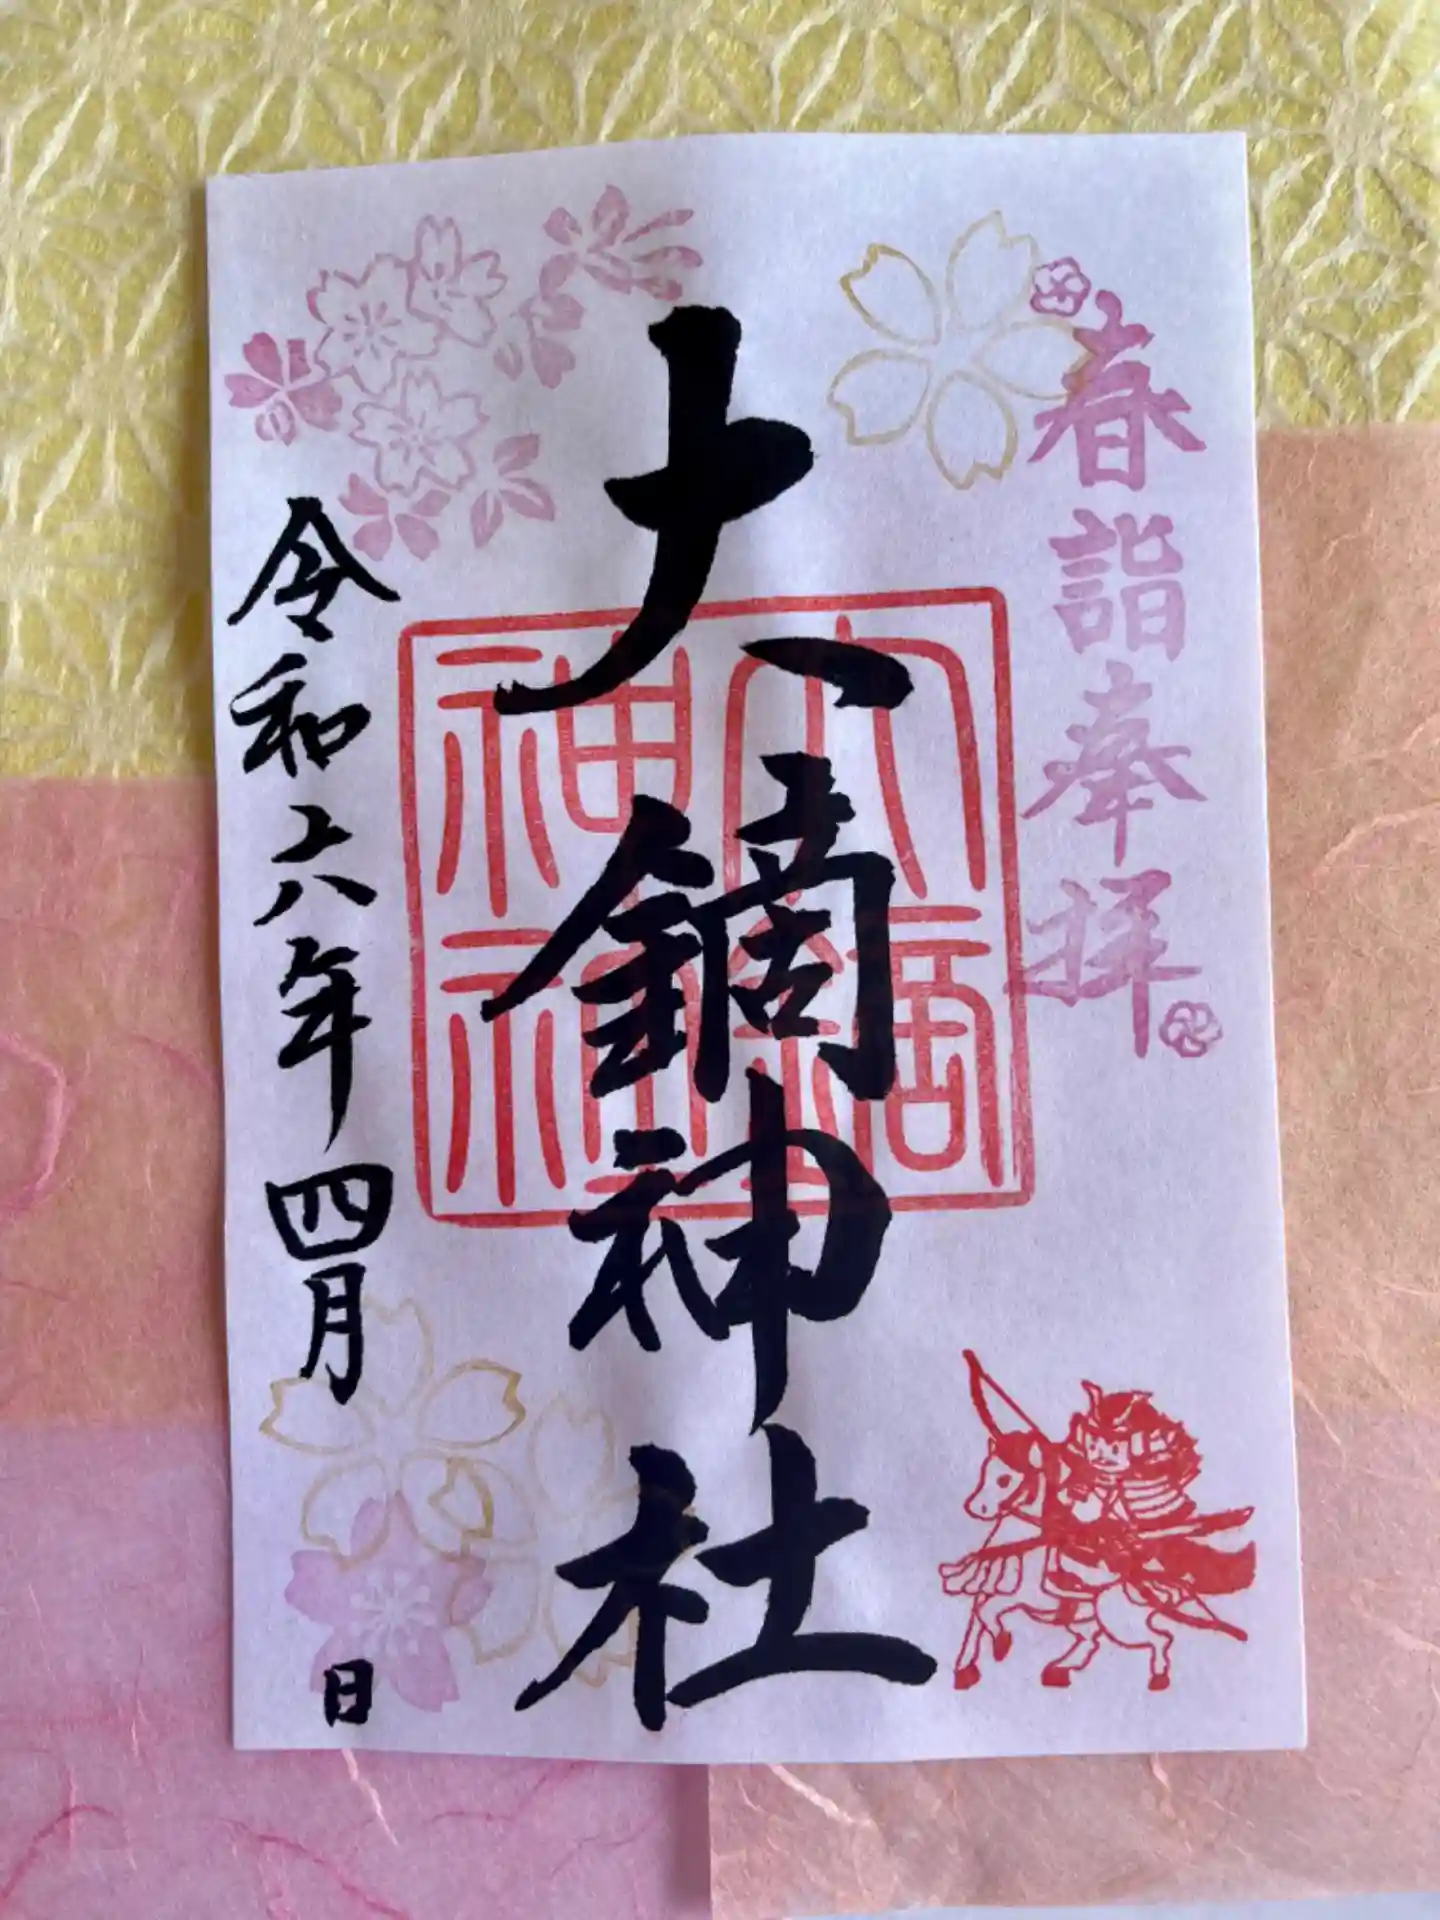 春詣奉拝
大鏑神社
大鏑神社
令和六年四月 日